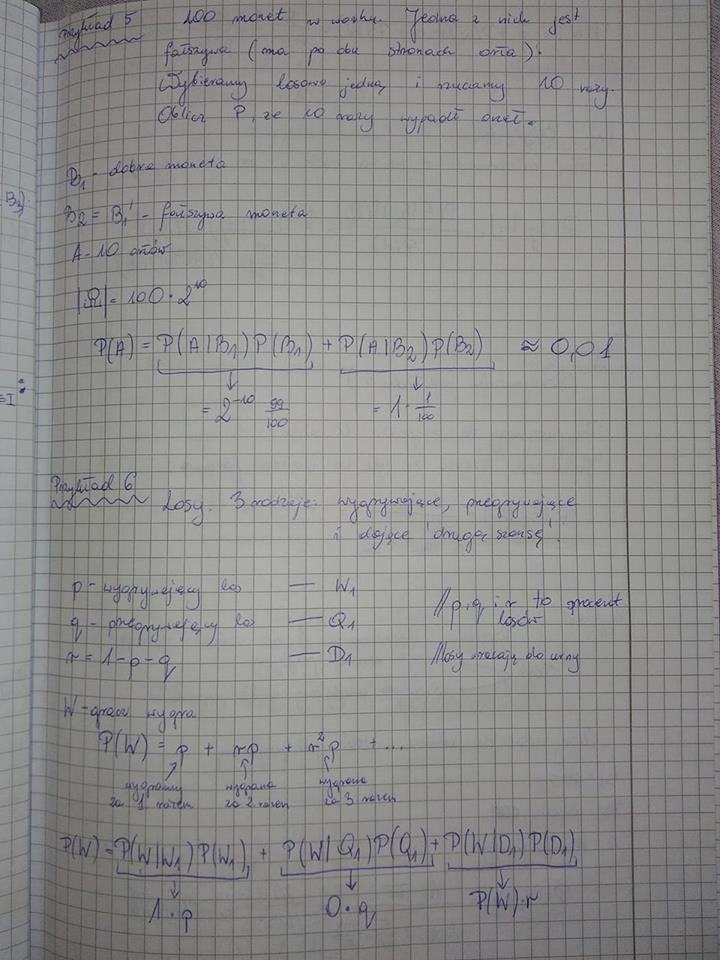 Przykład 5 100 monet w worku. Jedna z nich jest
fałszywa (ma po obu stronach orła).
Wybieramy losowo jedną i rzucamy 10 razy.
Oblicz P, że 10 razy wypadł orzeł.
B₁ - dobra moneta
B₃)
B₂ = B₁' - fałszywa moneta
A - 10 orłów
|Ω| = 100 · 2¹⁰
P(A) = P(A|B₁) P(B₁) + P(A|B₂) P(B₂) ≈ 0,01
= 2⁻¹⁰ 99/100 = 1 · 1/100
Przykład 6 Losy. 3 rodzaje: wygrywające, przegrywające
i dające 'drugą szansę'.
p - wygrywający los — W₁
q - przegrywający los — Q₁
r = 1 - p - q — D₁
// p, q i r to procent
losów
// losy wracają do urny
W - gracz wygra
P(W) = p + rp + r²p + ...
wygramy za 1 razem
wygrana za 2 razem
wygrana za 3 razem
P(W) = P(W|W₁) P(W₁) + P(W|Q₁) P(Q₁) + P(W|D₁) P(D₁)
1 · p 0 · q P(W) · r